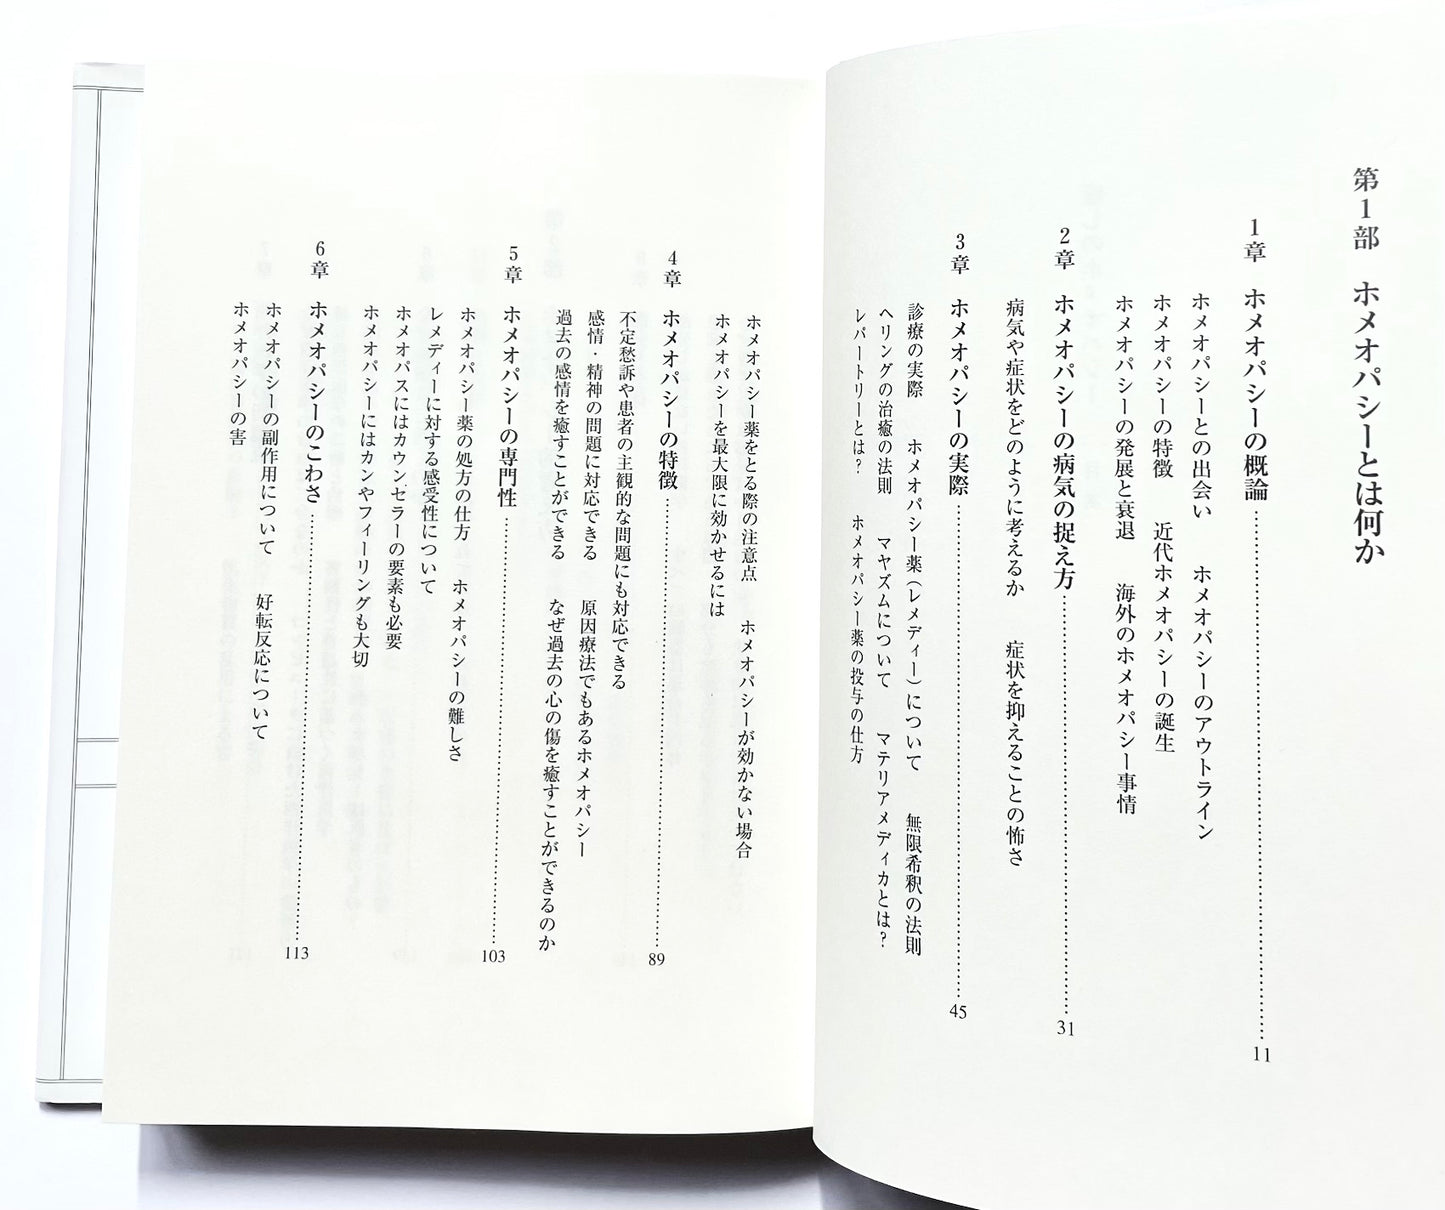 第1部　ホメオパシーとは何か
1章　ホメオパシーの概論……………………11
ホメオパシーとの出会い　ホメオパシーのアウトライン
ホメオパシーの特徴　近代ホメオパシーの誕生
ホメオパシーの発展と衰退　海外のホメオパシー事情
2章　ホメオパシーの病気の捉え方……………………31
病気や症状をどのように考えるか　症状を抑えることの怖さ
3章　ホメオパシーの実際……………………45
診療の実際　ホメオパシー薬（レメディー）について　無限希釈の法則
ヘリングの治癒の法則　マヤズムについて　マテリアメディカとは?
レパートリーとは?　ホメオパシー薬の投与の仕方
ホメオパシー薬をとる際の注意点　ホメオパシーが効かない場合
ホメオパシーを最大限に効かせるには
4章　ホメオパシーの特徴……………………89
不定愁訴や患者の主観的な問題にも対応できる
感情・精神の問題に対応できる　原因療法でもあるホメオパシー
過去の感情を癒すことができる　なぜ過去の心の傷を癒すことができるのか
5章　ホメオパシーの専門性……………………103
ホメオパシー薬の処方の仕方　ホメオパシーの難しさ
レメディーに対する感受性について
ホメオパスにはカウンセラーの要素も必要
ホメオパシーにはカンやフィーリングも大切
6章　ホメオパシーのこわさ……………………113
ホメオパシーの副作用について　好転反応について
ホメオパシーの害